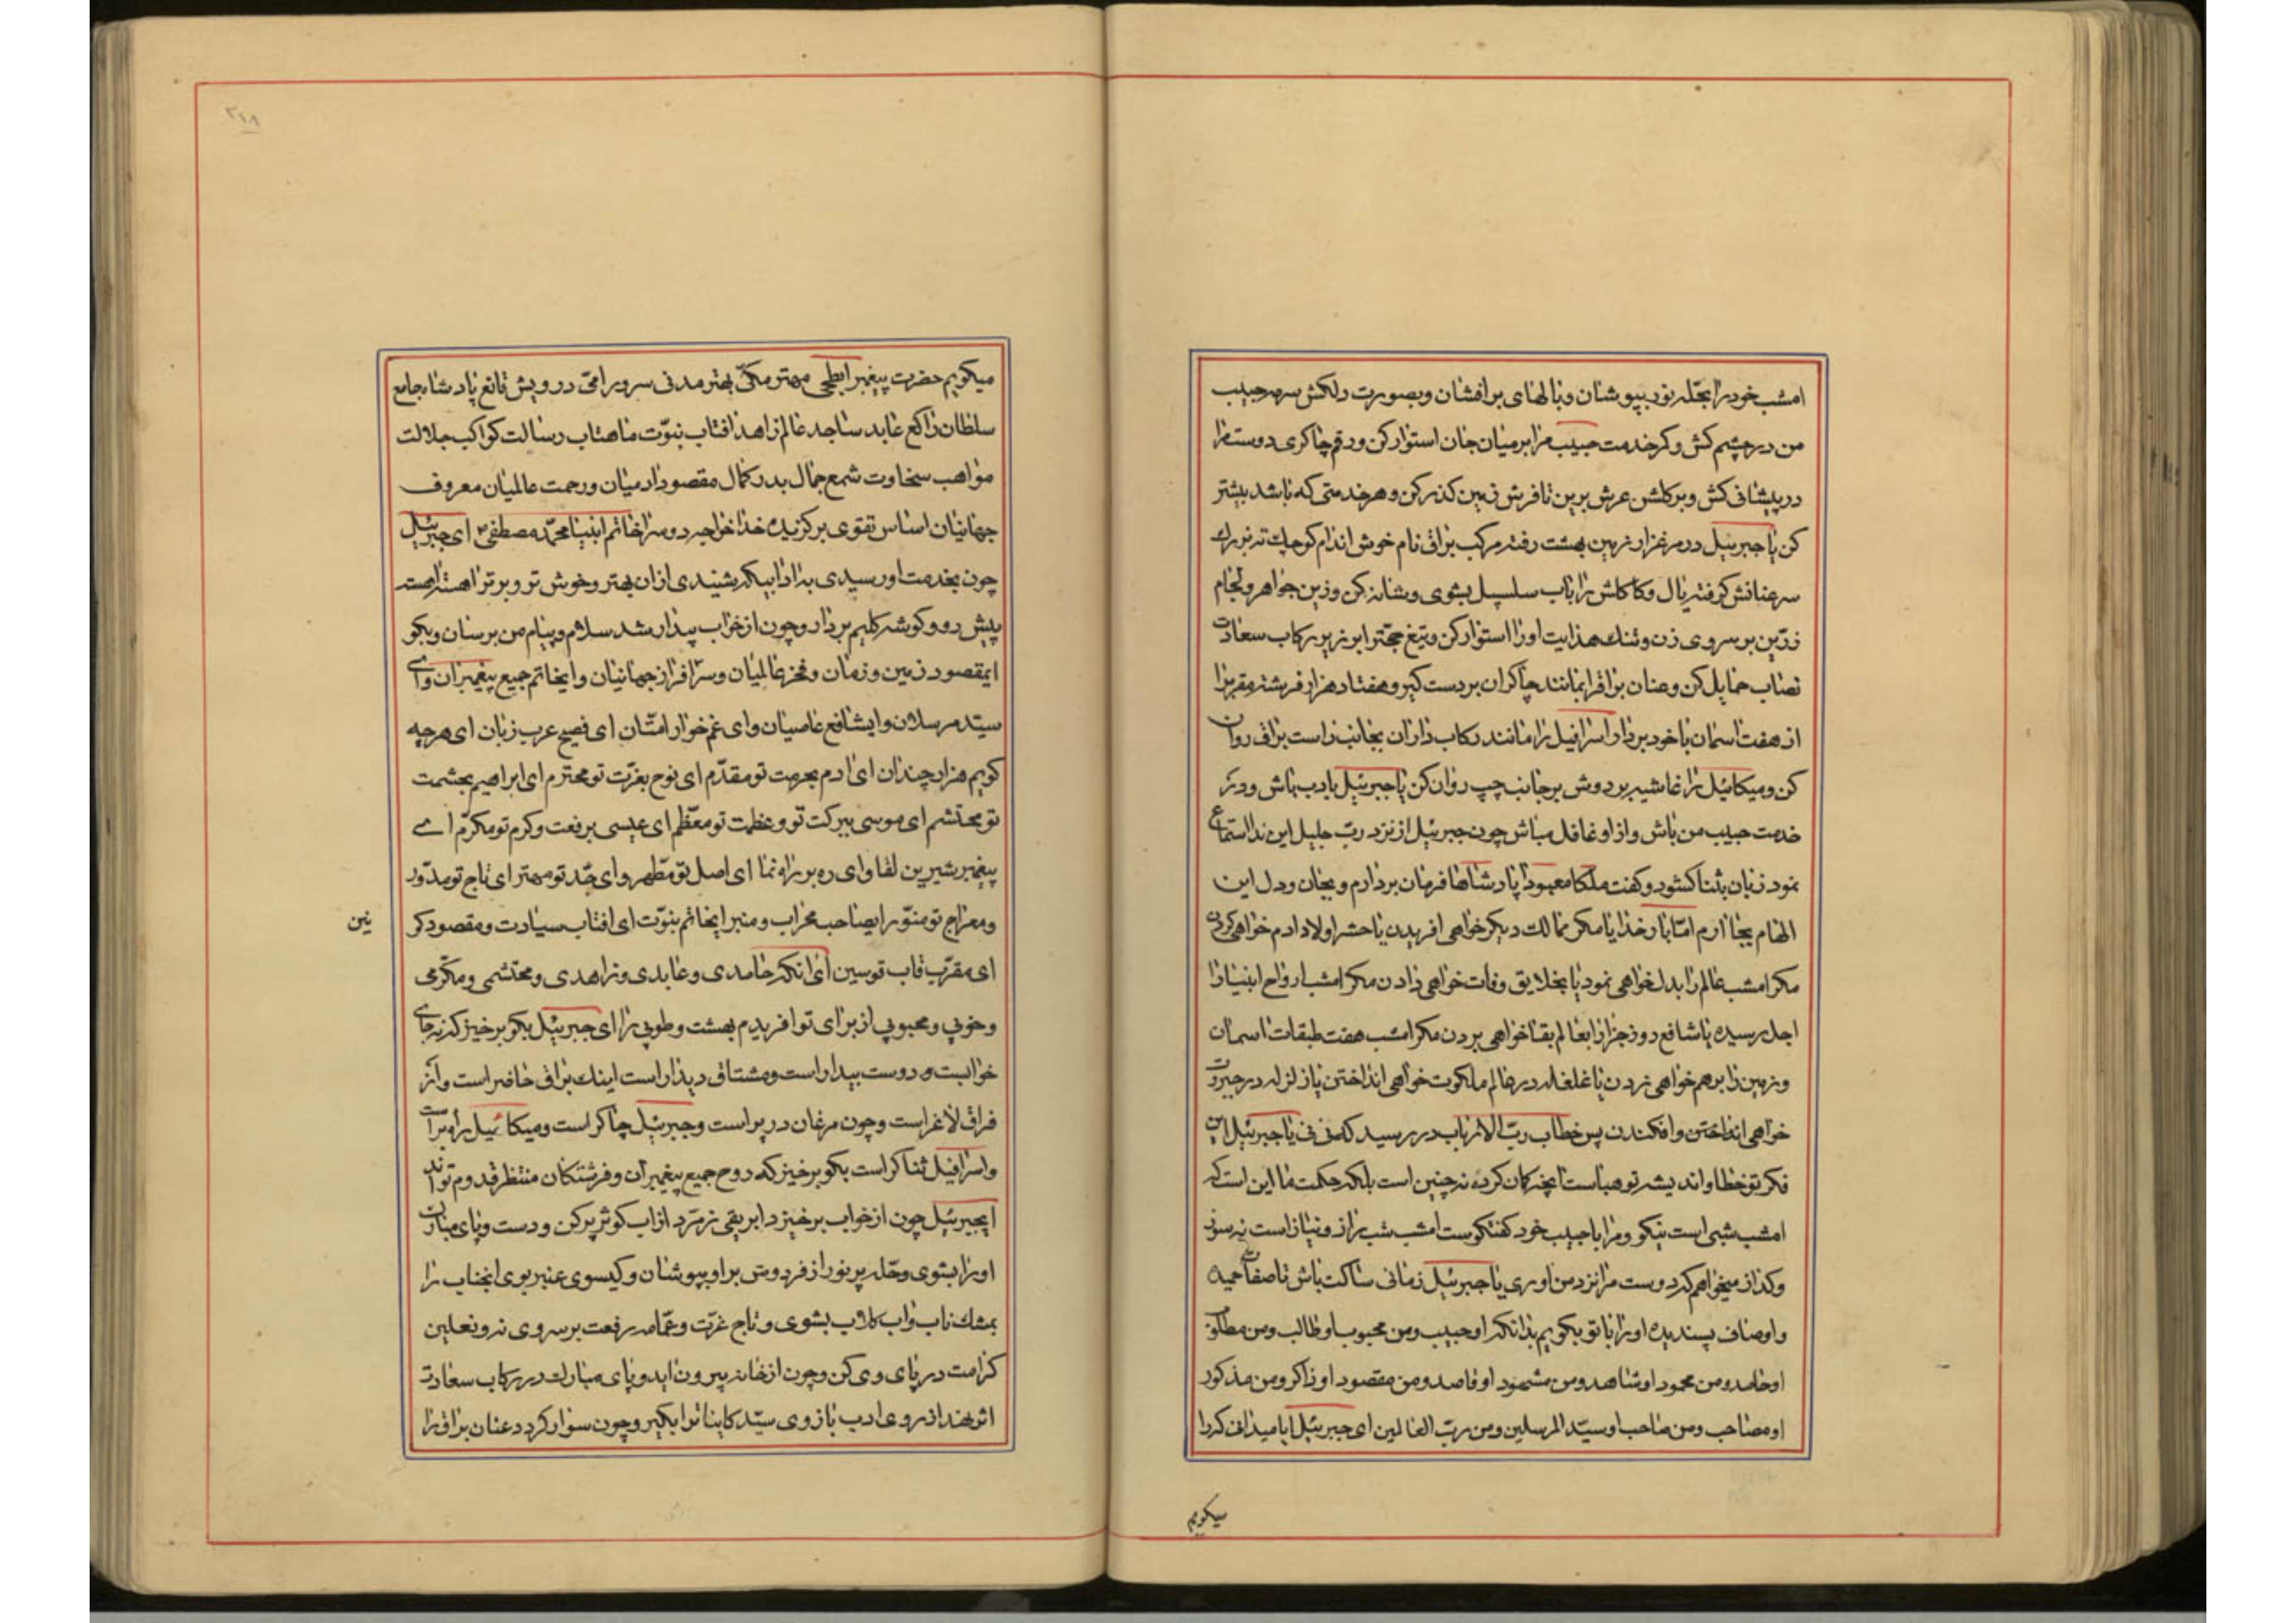 امشب خود را بحلّه نور بپوشان و بالهای بر افشان و بصورت دلکش سرمه حبیب
من در چشم کش و کمر خدمت حبیب مرا بر میان جان استوار کن و رقم چاکری دوست مرا
در پیشانی کش و بر گلشن عرش برین تا فرش زمین گذر کن و هر خدمتی که باشد بیشتر
کن یا جبرئیل در مرغزار زمین بهشت رفته مرکب براق نام خوش اندام کوچک نه بزرک
سر عنانش گرفته یال و کاکلش را باب سلسبیل بشوی و شانه کن و زین جواهر و لجام
زرّین بر سر وی زن و تنک هدایت او را استوار کن و تیغ حجّت را بر زیر رکاب سعادت
نصاب حمایل کن و عنان براق را بمانند چاکران بر دست گیر و هفتاد هزار فرشته مقرب را
از هفت اسمان با خود بردار اسرافیل را مانند رکاب داران بجانب راست براق روان
کن و میکائیل را غاشیه بر دوش بر جانب چپ روان کن یا جبرئیل با ادب باش و در
خدمت حبیب من باش و از او غافل مباش چون جبرئیل از نزد ربّ جلیل این ندا استماع
نمود زبان بثنا کشود و کفت ملکا معبودا پادشاها فرمان بردارم و بجان و دل این
الهام بجا ارم امّا بار خدایا مکر ممالک دیکر خواهی افریدن یا حشر اولاد ادم خواهی کردن
مکر امشب عالم را بدل خواهی نمود یا بخلایق وفات خواهی دادن مکر امشب ارواح انبیا را
اجل رسیده یا شافع روز جزا را بعالم بقا خواهی بردن مکر امشب هفت طبقات اسمان
و زمین را برهم خواهی زدن یا غلغله در عالم ملکوت خواهی انداختن یا زلزله در جبروت
خواهی انداختن و افکندن پس خطاب ربّ الارباب در رسید که نی نی یا جبرئیل این
فکر تو خطا و اندیشه تو هباست انچه کمان کرده نه چنین است بلکه حکمت ما این است که
امشب شبی است نیکو و مرا با حبیب خود کفتکوست امشب شب راز و نیاز است نه سوز
و کداز میخواهم که دوست مرا نزد من اوری یا جبرئیل زمانی ساکت باش تا صفات حمیده
و اوصاف پسندیده او را با تو بکویم بدانکه او حبیب و من محبوب او طالب و من مطلوب
او حامد و من محمود او شاهد و من مشهود او قاصد و من مقصود او ذاکر و من مذکور
او مصاحب و من صاحب او سیّد المرسلین و من ربّ العالمین ای جبرئیل ایا میدانی که را
میکویم
۲۱۸
میکویم حضرت پیغمبر ابطحی مهتر مکّی بهتر مدنی سرور امّی درویش قانع پادشاه جامع
سلطان راکع عابد ساجد عالم زاهد افتاب نبوّت ماهتاب رسالت کواکب جلالت
مواهب سخاوت شمع جمال بدر کمال مقصود ادمیان و رحمت عالمیان معروف
جهانیان اساس تقوی برکزیده خدا خواجه دو سرا خاتم انبیا محمّد مصطفی ای جبرئیل
چون بخدمت او رسیدی بادابیکه شنیدی ازان بهتر و خوش تر و برتر اهسته اهسته
پیش رو و کوشه کلیم بردار و چون از خواب بیدار شد سلام و پیام من برسان و بکو
ایمقصود زمین و زمان و فخر عالمیان و سرافراز جهانیان و ایخاتم جمیع پیغمبران و ای
سیّد مرسلان و ایشافع عاصیان و ای غم خوار امتّان ای فصیح عرب زبان ای هر چه
کویم هزار چندان ای ادم بحرمت تو مقدّم ای نوح بعزّت تو محترم ای ابراهیم بحشمت
تو محتشم ای موسی ببرکت تو و عظمت تو معظّم ای عیسی برفعت و کرم تو مکرّم ای
پیغمبر شیرین لقا و ای رهبر راه نما ای اصل تو مطهر و ای جدّ تو مهتر ای تاج تو مدوّر
و معراج تو منوّر ایصاحب محراب و منبر ایخاتم نبوّت ای افتاب سیادت و مقصود کو
نین
ای مقرّب قاب قوسین ای انکه حامدی و عابدی و زاهدی و محتشمی و مکرّمی
و خوبی و محبوبی از برای تو افریدم بهشت و طوبی را ای جبرئیل بکو برخیز که نه جای
خوابست و دوست بیدار است و مشتاق دیدار است اینک براق حاضر است و از
فراق لاغر است و چون مرغان در پر است و جبرئیل چاکر است و میکائیل راه براست
و اسرافیل ثناکر است بکو برخیز که روح جمیع پیغمبران و فرشتکان منتظر قدوم تواند
ایجبرئیل چون از خواب برخیزد ابریقی زمرّد از اب کوثر پر کن و دست و پای مبارک
او را بشوی و حلّه پر نور از فردوس بر او بپوشان و کیسوی عنبر بوی انجناب را
بمشک ناب و اب کلاب بشوی و تاج عزّت و عمّامه رفعت بر سر وی نه و نعلین
کرامت در پای وی کن و چون از خانه بیرون اید و پای مبارک در رکاب سعادت
اثر نهد از روی ادب بازوی سیّد کاینات را بکیر و چون سوار کردد عنان براق را